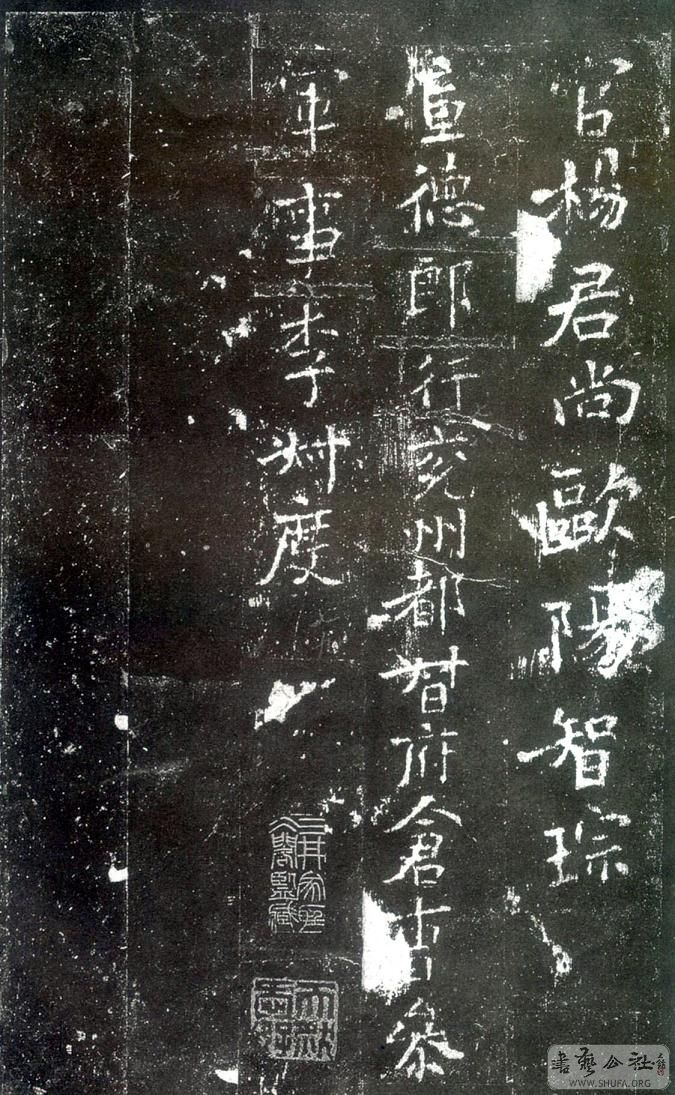 官楊君尚歐陽智琮
宣德郎行兗州都督府倉曹參
軍事李叔度
三井家聽
冰閣監藏
書藝公社
WWW.SHUFA.ORG